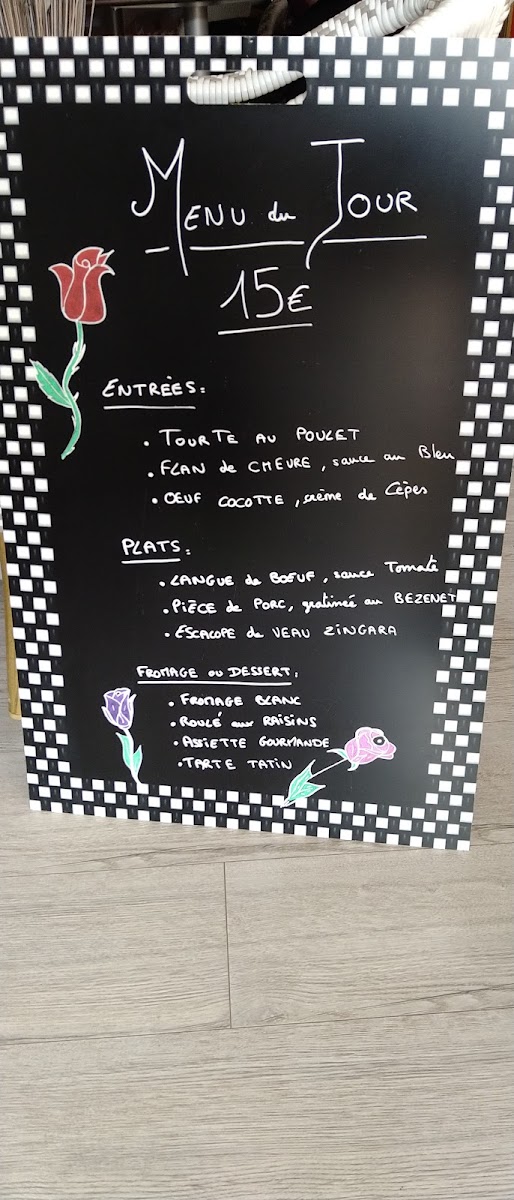 MENU du JOUR
15€
ENTRÉES:
• TOURTE AU POULET
• FLAN de CHEVRE, sauce au Bleu
• OEUF COCOTTE, crème de Cèpes
PLATS:
• LANGUE de BOEUF, sauce Tomate
• PIÈCE de PORC, gratinée au BEZENET
• ESCALOPE de VEAU ZINGARA
FROMAGE ou DESSERT:
• FROMAGE BLANC
• ROULÉ aux RAISINS
• ASSIETTE GOURMANDE
• TARTE TATIN